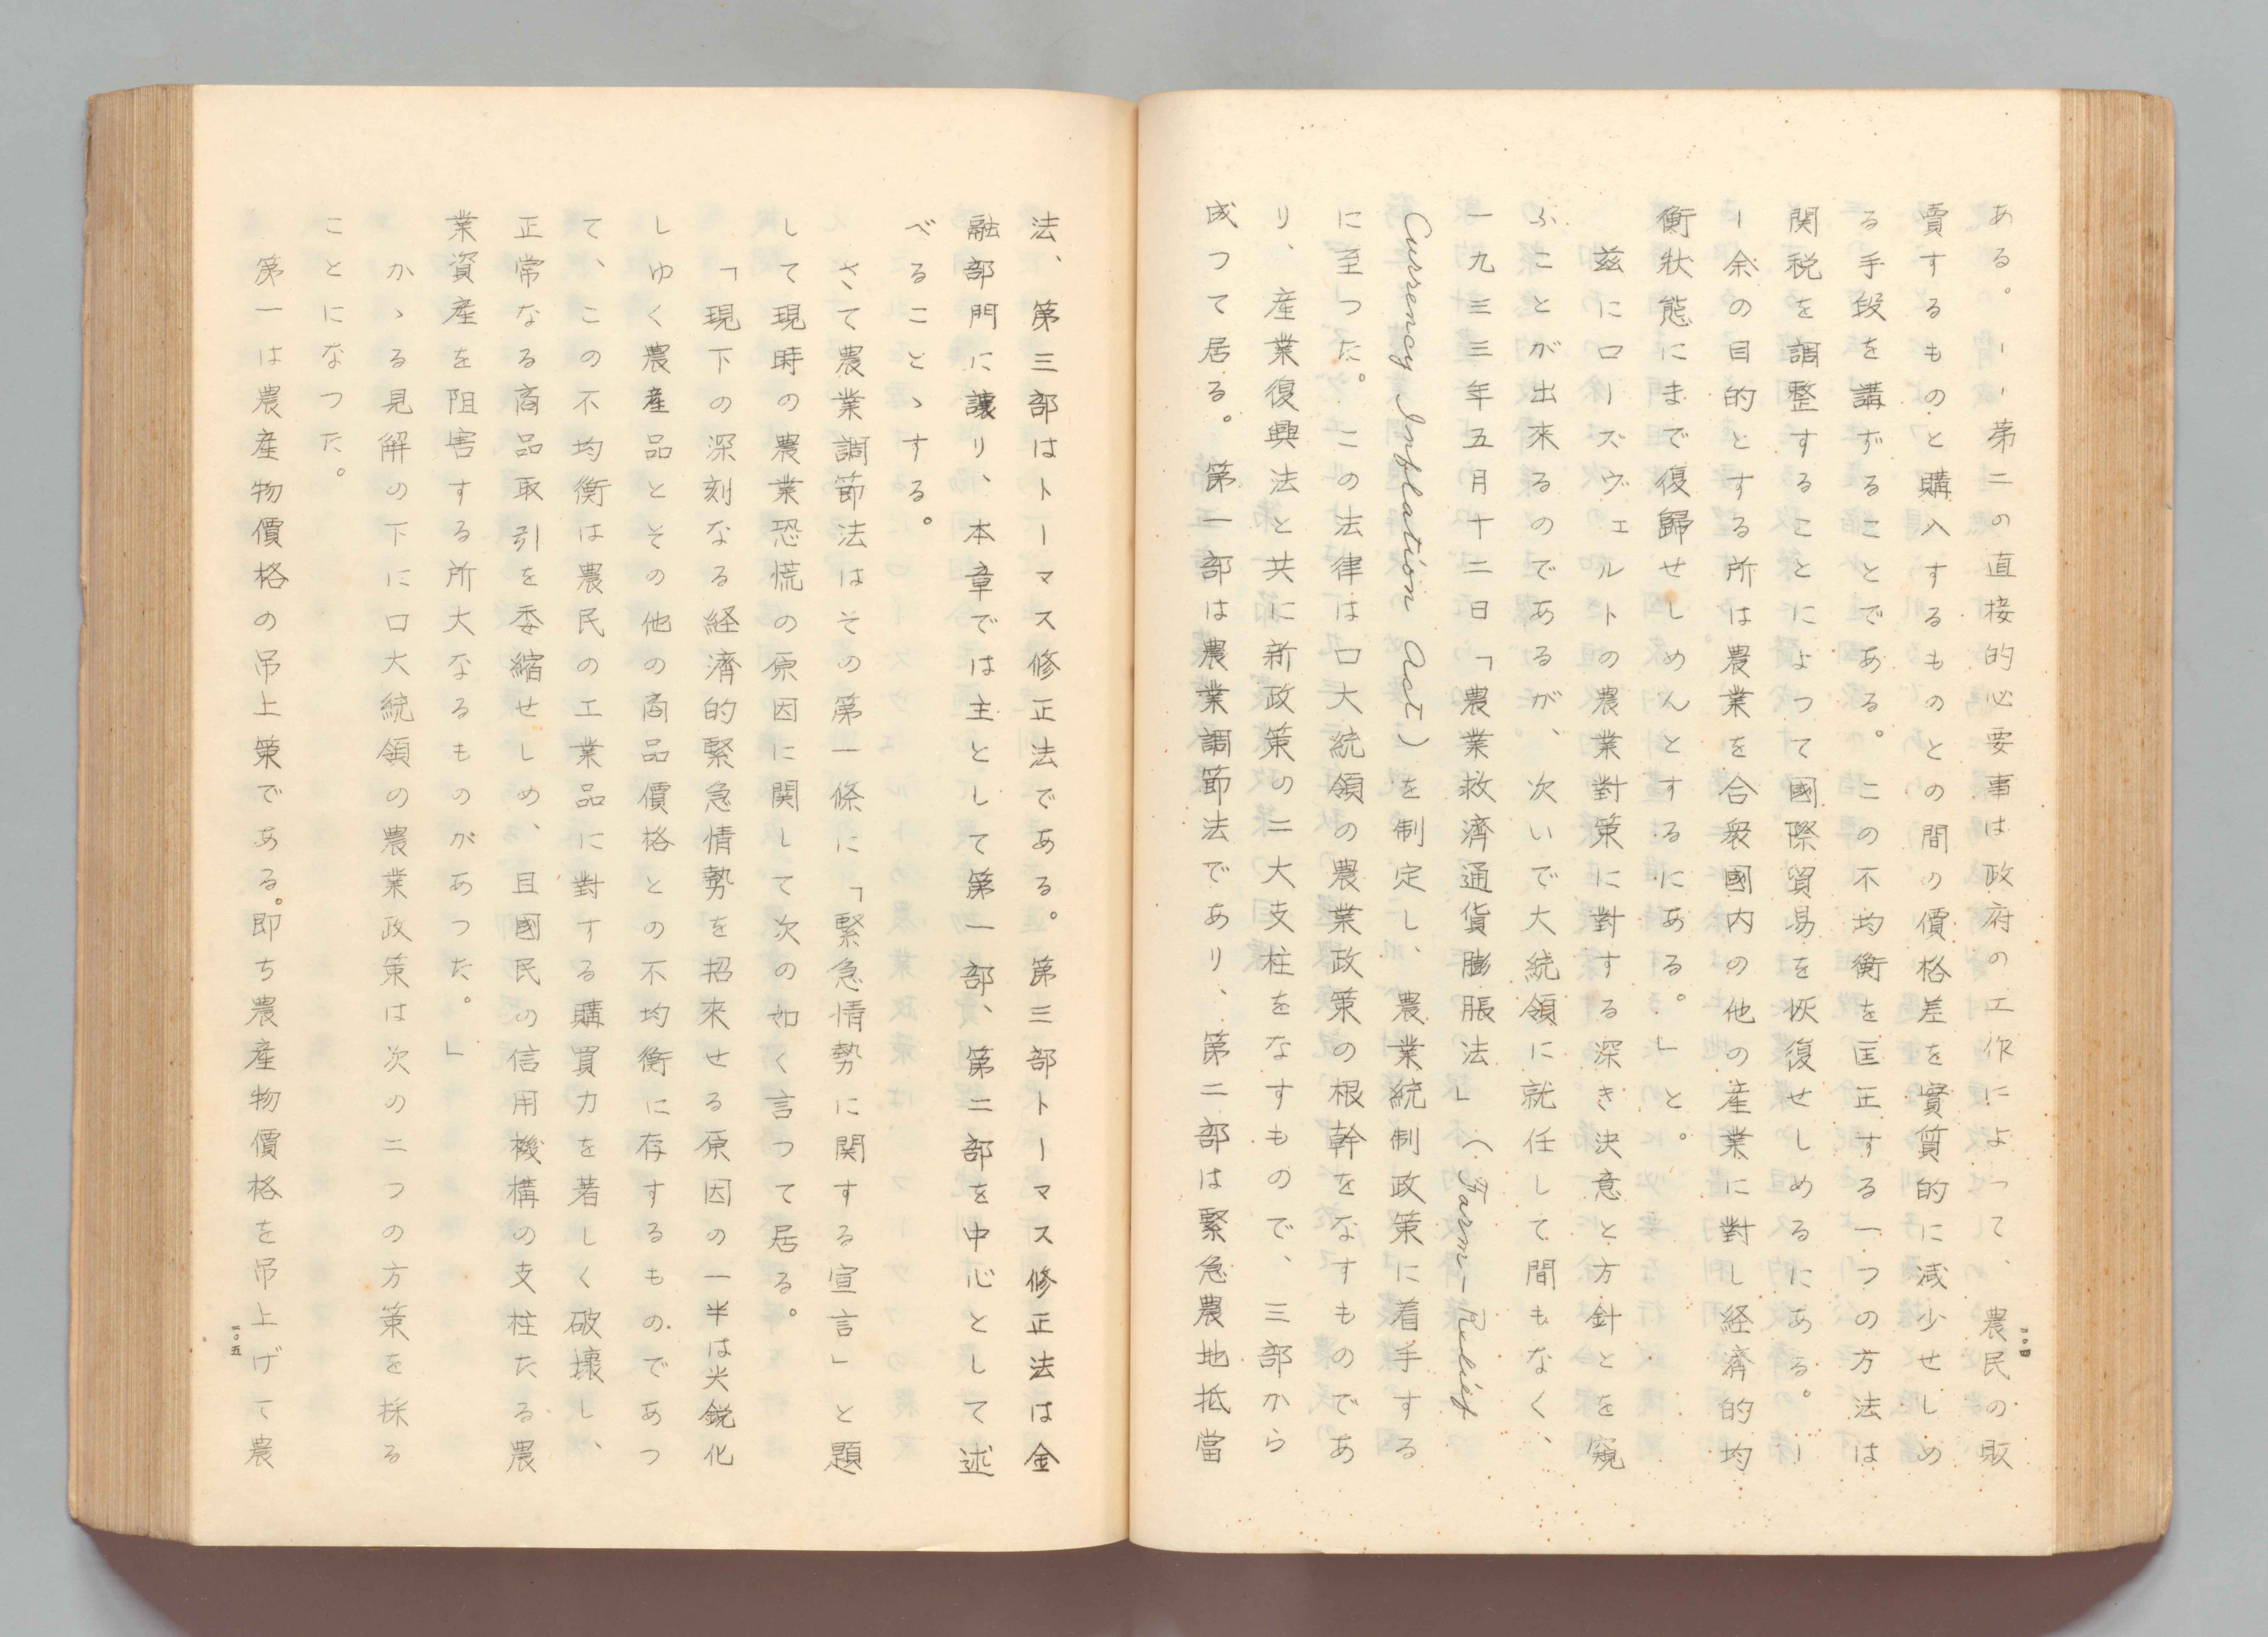 ある。ーー第二の直接的必要事は政府の工作によつて、農民の販
賣するものと購入するものとの間の價格差を實質的に減少せしめ
る手段を講ずることである。この不均衡を匡正する一つの方法は
関税を調整することによつて國際貿易を恢復せしめるにある。ー
ー余の目的とする所は農業を合衆國内の他の産業に對し経濟的均
衡狀態にまで復歸せしめんとするにある。」と。
茲にローズヴェルトの農業對策に對する深き決意と方針とを窺
ふことが出來るのであるが、次いで大統領に就任して間もなく、
一九三三年五月十二日「農業救濟通貨膨脹法」（Farm-Relief
Currency Inflation Act）を制定し、農業統制政策に着手する
に至つた。この法律は口大統領の農業政策の根幹をなすものであ
り、産業復興法と共に新政策の二大支柱をなすもので、三部から
成つて居る。第一部は農業調節法であり、第二部は緊急農地抵當
一〇四
法、第三部はトーマス修正法である。第三部トーマス修正法は金
融部門に讓り、本章では主として第一部、第二部を中心として述
べることゝする。
さて農業調節法はその第一條に「緊急情勢に関する宣言」と題
して現時の農業恐慌の原因に関して次の如く言つて居る。
「現下の深刻なる経濟的緊急情勢を招來せる原因の一半は尖鋭化
しゆく農産品とその他の商品價格との不均衡に存するものであつ
て、この不均衡は農民の工業品に對する購買力を著しく破壞し、
正常なる商品取引を委縮せしめ、且國民の信用機構の支柱たる農
業資産を阻害する所大なるものがあつた。」
かゝる見解の下に口大統領の農業政策は次の二つの方策を採る
ことになつた。
第一は農産物價格の吊上策である。即ち農産物價格を吊上げて農
一〇五